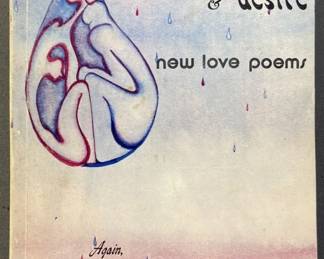 & desire
new love poems
Again,